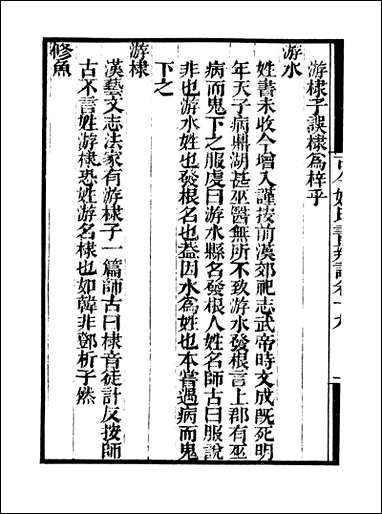 游棣子誤棣爲梓乎
游水
姓書未收今增入謹按前漢郊祀志武帝時文成旣死明
年天子病鼎湖甚巫醫無所不致游水發根言上郡有巫
病而鬼下之服虔曰游水縣名發根人姓名師古曰服說
非也游水姓也發根名也蓋因水爲姓也本嘗遇病而鬼
下之
游棣
漢藝文志法家有游棣子一篇師古曰棣音徒計反按師
古不言姓游棣恐姓游名棣也如韓非鄧析子然
修魚
古今姓氏書辯證卷十九